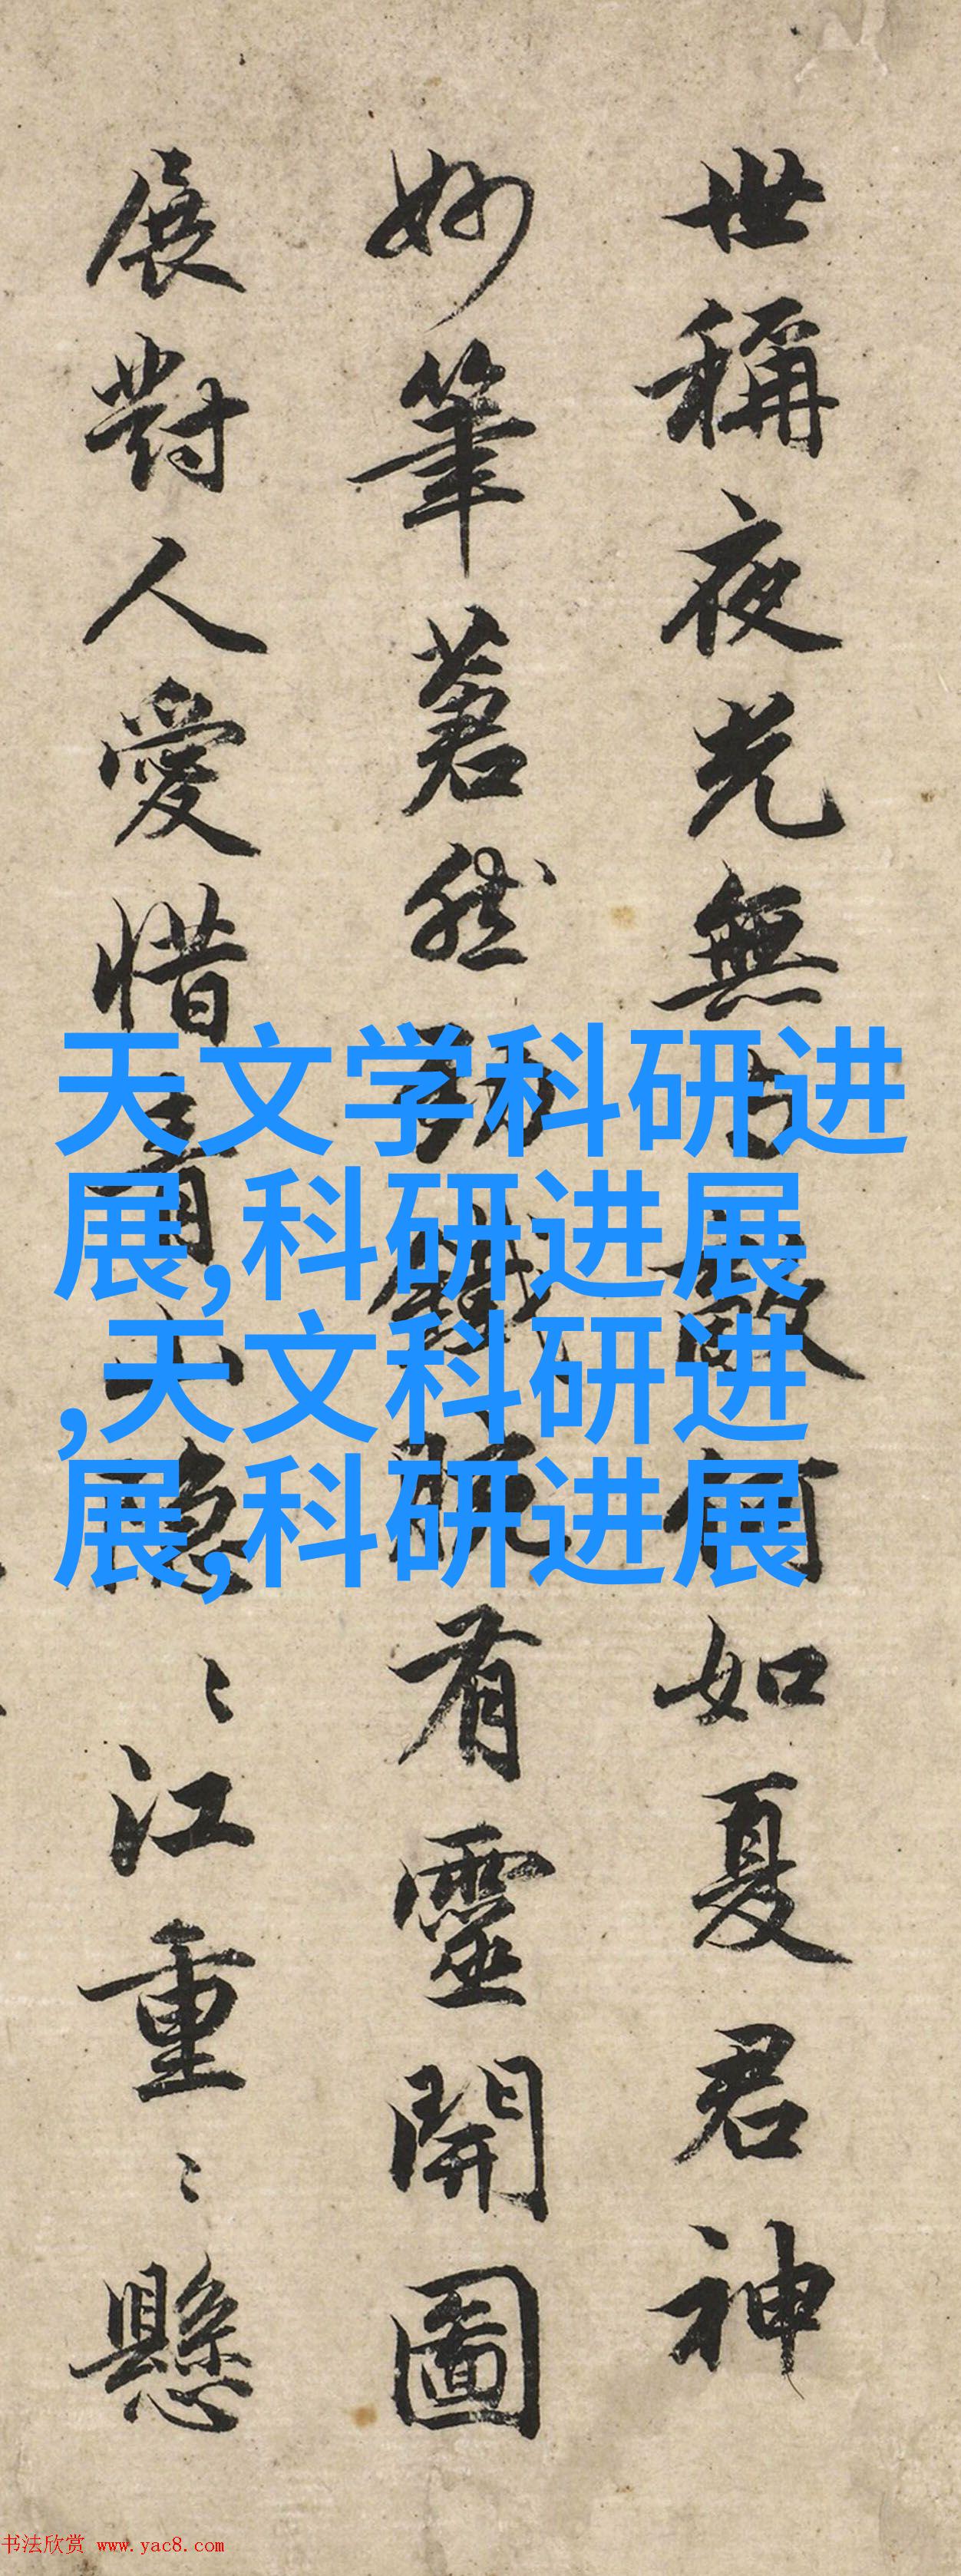 世稱夜光無與敵何如夏君神
妙筆著然有靈開圖
展對人愛惜有隐〻江重〻懸
天文学科研进
展,科研进展
,天文科研进
展,科研进展
书法欣赏 www.yac8.com